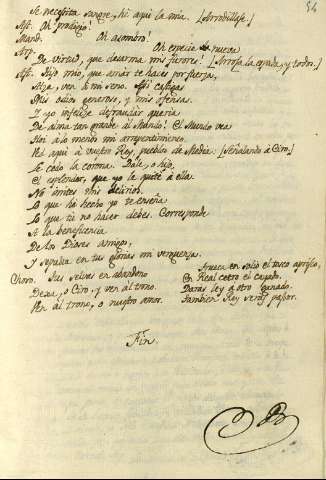 54
Se necesita sangre, hé aqui la mia. [Arrodillase.]
Ast. Oh prodigio!
Mand. Oh asombro!
Arp. Oh especie nueva
De virtud, que desarma mis furores! [Arroja la espada, y todos.]
Ast. Hijo mio, que amar te haces por fuerza,
Alza, ven á mi seno. Asi castigas
Mis odios generoso, y mis ofensas.
I yo infelize defraudar queria
De alma tan grande al Mundo! El Mundo vea
Hoi a lo menos mi arrepentimiento.
Hé aqui á vuestro Rey, pueblos de Media. [Señalando á Ciro.]
Le cedo la corona. Dale, o hijo,
El esplendor, que yo le quité á ella.
No imites mis delirios.
Lo que ha hecho yo te enseña
Lo que tú no hacer debes. Corresponde
A la beneficencia
De los Dioses amigos,
Y sepulta en tus glorias mi verguenza.
Choro. Tus selvas en abandono
Dexa, o Ciro, y ven al trono.
Ven al trono, o nuestro amor.
Trueca en solio el tosco aprisco,
En Real cetro el cayado.
Darás ley a otro ganado.
Tambien Rey serás pastor.
Fin.